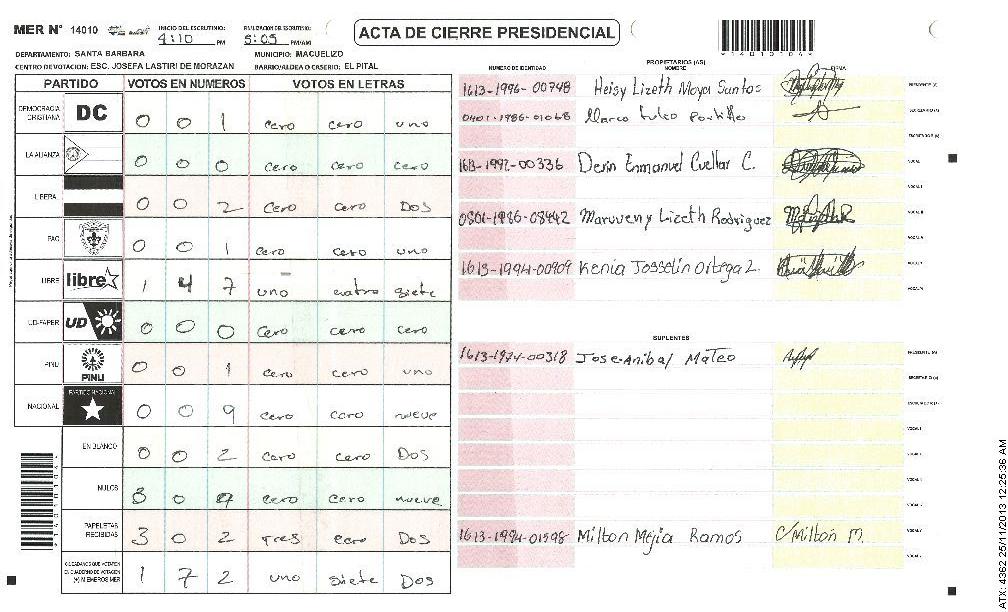 MER N° 14010 INICIO DEL ESCRUTINIO: 4:10 PM FINALIZACION DE ESCRUTINIO: 5:05 PM/AM
ACTA DE CIERRE PRESIDENCIAL
DEPARTAMENTO: SANTA BARBARA MUNICIPIO: MACUELIZO
CENTRO DE VOTACION: ESC. JOSEFA LASTIRI DE MORAZAN BARRIO/ALDEA O CASERIO: EL PITAL
PARTIDO VOTOS EN NUMEROS VOTOS EN LETRAS
DEMOCRACIA CRISTIANA DC 0 0 1 cero cero uno
LA ALIANZA 0 0 0 cero cero cero
LIBERA 0 0 2 cero cero Dos
PAC 0 0 1 cero cero uno
LIBRE libre 1 4 7 uno cuatro siete
UD-FAPER UD 0 0 0 cero cero cero
PINU PINU 0 0 1 cero cero uno
NACIONAL PARTIDO NACIONAL 0 0 9 cero cero nueve
EN BLANCO 0 0 2 cero cero Dos
NULOS 0 cero cero nueve
PAPELETAS RECIBIDAS 3 0 2 tres cero Dos
CIUDADANOS QUE VOTARON EN CUADERNO DE VOTACION (+) MIEMBROS MER 1 7 2 uno siete Dos
PROPIETARIOS (AS)
NUMERO DE IDENTIDAD NOMBRE FIRMA
1613-1996-00748 Heisy Lizeth Moya Santos PRESIDENTE (A)
0401-1986-01068 Marco tulio Portillo SECRETARIO (A)
ESCRUTADOR (A)
1613-1992-00336 Derin Enmanuel Cuellar C. VOCAL I
0801-1986-08442 Maruveny Lizeth Rodriguez
1613-1994-00909 Kenia Josselin Ortega Z.
SUPLENTES
1613-1974-00318 Jose Anibal Mateo PRESIDENTE (A)
SECRETARIO (A)
1613-1994-01598 Milton Mejia Ramos Milton M.
ATX: 4362 25/11/2013 12:25:36 AM